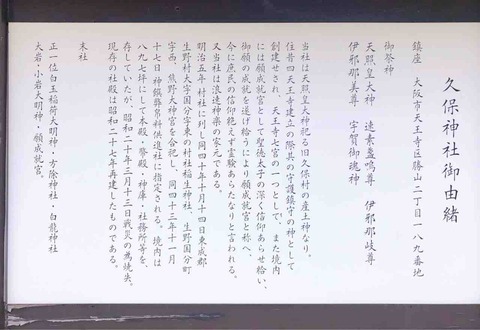 久保神社御由緒
鎮座　大阪市天王寺区勝山二丁目一八九番地
御祭神
天照皇大神　速素盞嗚尊　伊邪那岐尊
伊邪那美尊　宇賀御魂神
当社は天照皇大神祀る旧久保村の産土神なり。
往昔四天王寺建立の際其の守護鎮守の神として
創建せされ、天王寺七宮の一つとして、また境内
には願成就宮として聖徳太子の深く信仰あらせ給い、
御願の成就を遂げ給うにより願成就宮と称へ、
今に庶民の信仰絶えず霊験あらたなりと言われる。
又当社は浪速神楽の家元である。
明治五年村社に列し同四十年十月十四日東成郡
生野村大字国分字東の村社稲生神社、生野国分町
字西、熊野大神宮を合祀し、同四十三年十一月
十七日神饌幣帛料供進社に指定される。境内は
八九七坪にして本殿・幣殿・神庫・社務所等を、
存していたが、昭和二十年三月十三日戦災の為焼失。
現存の社殿は昭和二十六年再建したものである。
末社
正一位白玉稲荷大明神・方除神社・白龍神社
大岩・小岩大明神・願成就宮。